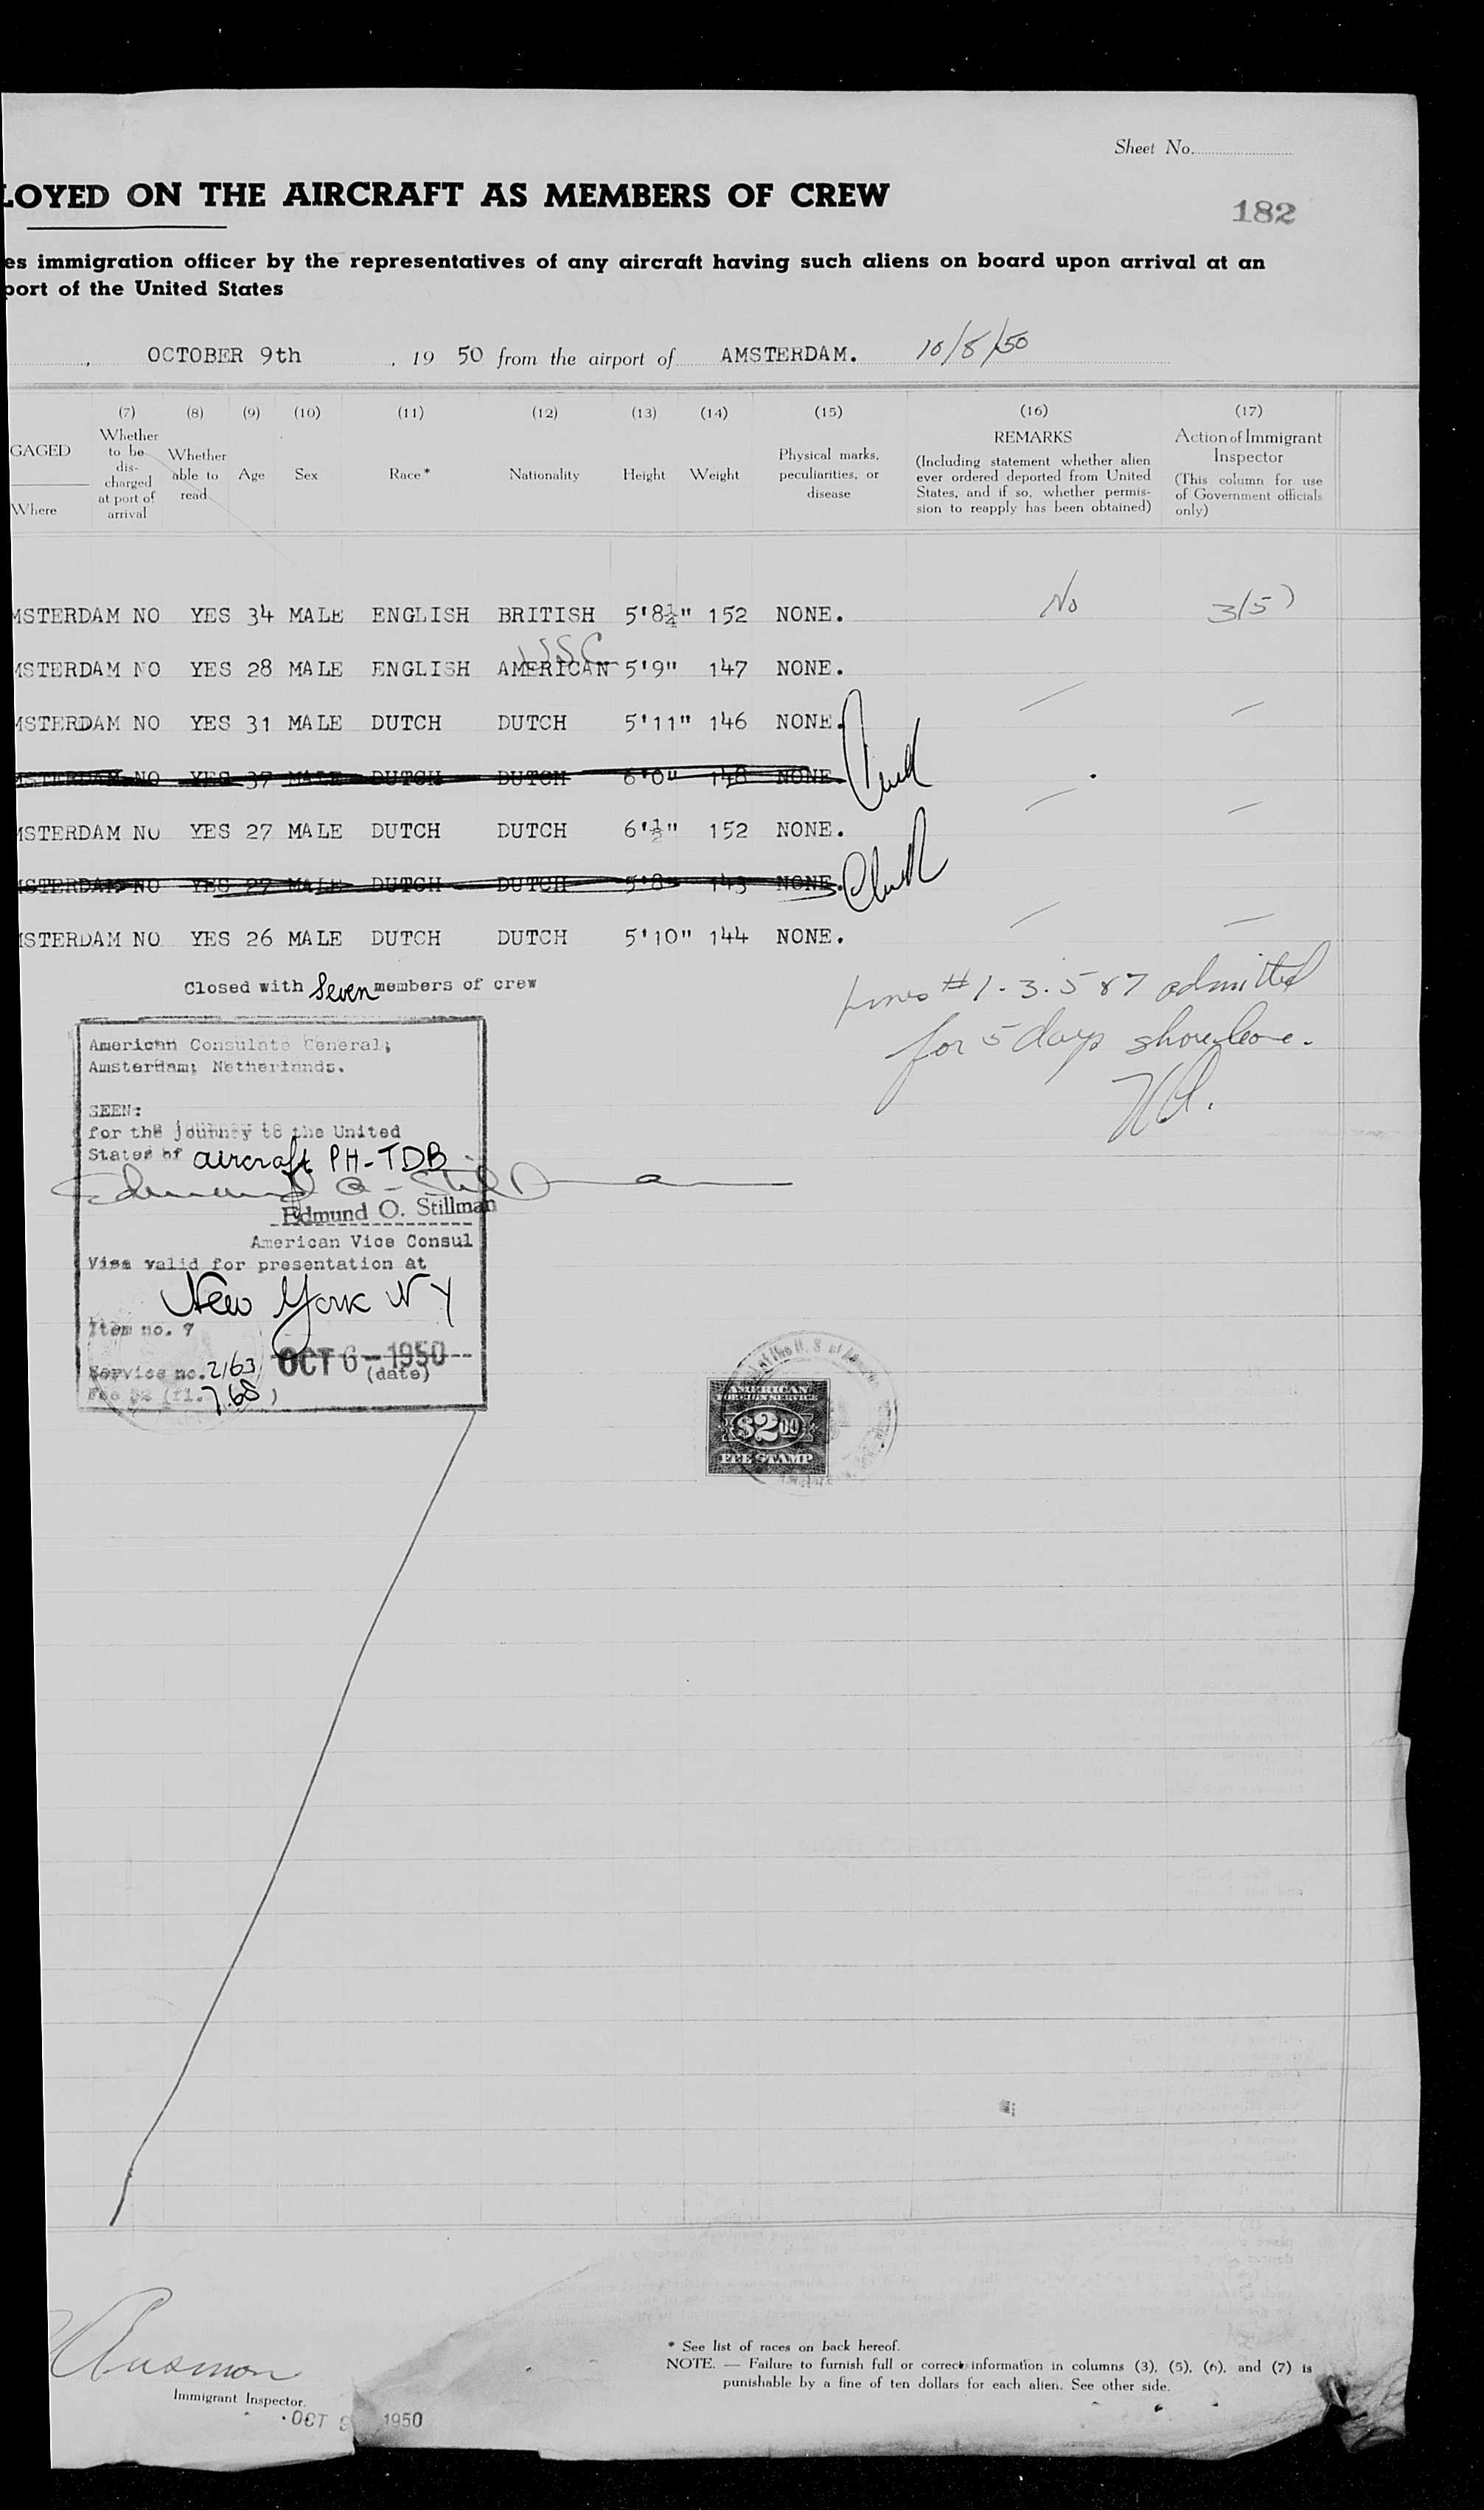 Sheet No.
LOYED ON THE AIRCRAFT AS MEMBERS OF CREW
182
es immigration officer by the representatives of any aircraft having such aliens on board upon arrival at an
port of the United States
, OCTOBER 9th , 19 50 from the airport of AMSTERDAM. 10/8/50
(7) (8) (9) (10) (11) (12) (13) (14) (15) (16) (17)
GAGED
Where
Whether
to be
dis-
charged
at port of
arrival
Whether
able to
read
Age
Sex
Race*
Nationality
Height
Weight
Physical marks,
peculiarities, or
disease
REMARKS
(Including statement whether alien
ever ordered deported from United
States, and if so, whether permis-
sion to reapply has been obtained)
Action of Immigrant
Inspector
(This column for use
of Government officials
only)
MSTERDAM NO YES 34 MALE ENGLISH BRITISH 5'8¼" 152 NONE. No 3(5)
USC
MSTERDAM NO YES 28 MALE ENGLISH AMERICAN 5'9" 147 NONE.
MSTERDAM NO YES 31 MALE DUTCH DUTCH 5'11" 146 NONE.
MSTERDAM NO YES 37 MALE DUTCH DUTCH 6'0" 148 NONE.
MSTERDAM NO YES 27 MALE DUTCH DUTCH 6'½" 152 NONE.
MSTERDAM NO YES 27 MALE DUTCH DUTCH 5'8" 143 NONE.
MSTERDAM NO YES 26 MALE DUTCH DUTCH 5'10" 144 NONE.
Closed with Seven members of crew
Lines #1-3.5 & 7 admitted
for 5 days shore leave.
American Consulate General;
Amsterdam; Netherlands.
SEEN:
for the journey to the United
States of aircraft PH-TDB
Edmund O. Stillman
Edmund O. Stillman
American Vice Consul
Visa valid for presentation at
New York NY
Item no. 7
Service no. 2163 OCT 6-1950
(date)
Fee $2 (fl. 7.60)
AMERICAN
FOREIGN SERVICE
$2.00
FEE STAMP
Immigrant Inspector.
OCT 1950
* See list of races on back hereof.
NOTE. — Failure to furnish full or correct information in columns (3), (5), (6), and (7) is
punishable by a fine of ten dollars for each alien. See other side.